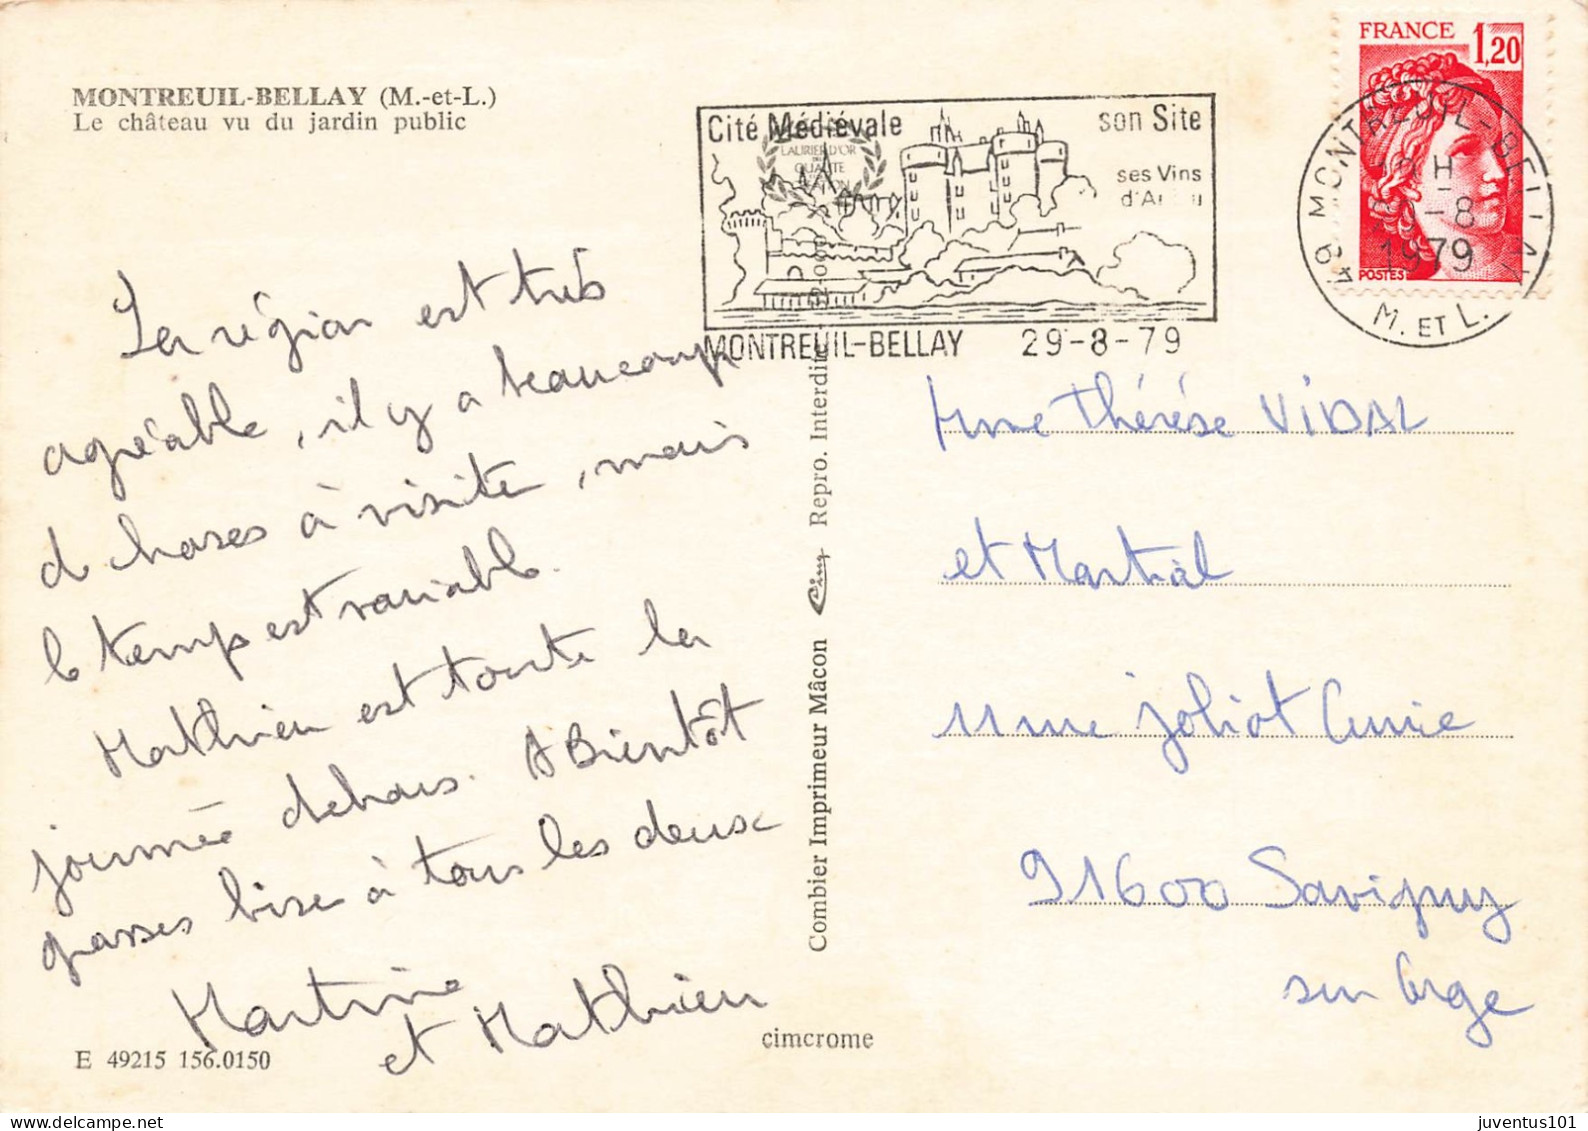 MONTREUIL-BELLAY (M.-et-L.)
Le château vu du jardin public
La région est très
agréable, il y a beaucoup
de choses à visiter, mais
le temps est variable.
Mathieu est toute la
journée dehors. A Bientôt
grosses bises à tous les deux
Martine
et Mathieu
E 49215 156.0150
Cité Médiévale
son Site
ses Vins
LAURIER D'OR
QUALITÉ
MONTREUIL-BELLAY 29-8-79
Combier Imprimeur Mâcon Cim Repro. Interdite
cimcrome
FRANCE 1,20
POSTES
49 MONTREUIL-BELLAY
M. ET L.
-8
1979
Mme Thérèse VIDAL
et Martial
11 rue Joliot Curie
91600 Savigny
sur Orge
juventus101